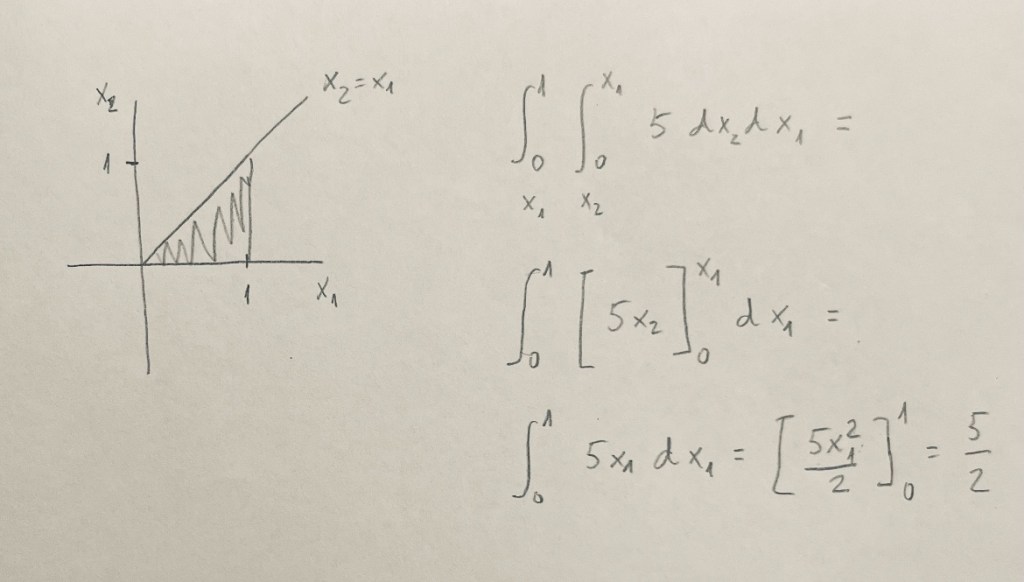 x₂
x₂ = x₁
1
1
x₁
∫₀¹ ∫₀^x₁ 5 dx₂ dx₁ =
x₁ x₂
∫₀¹ [5x₂]₀^x₁ dx₁ =
∫₀¹ 5x₁ dx₁ = [5x₁²/2]₀¹ = 5/2